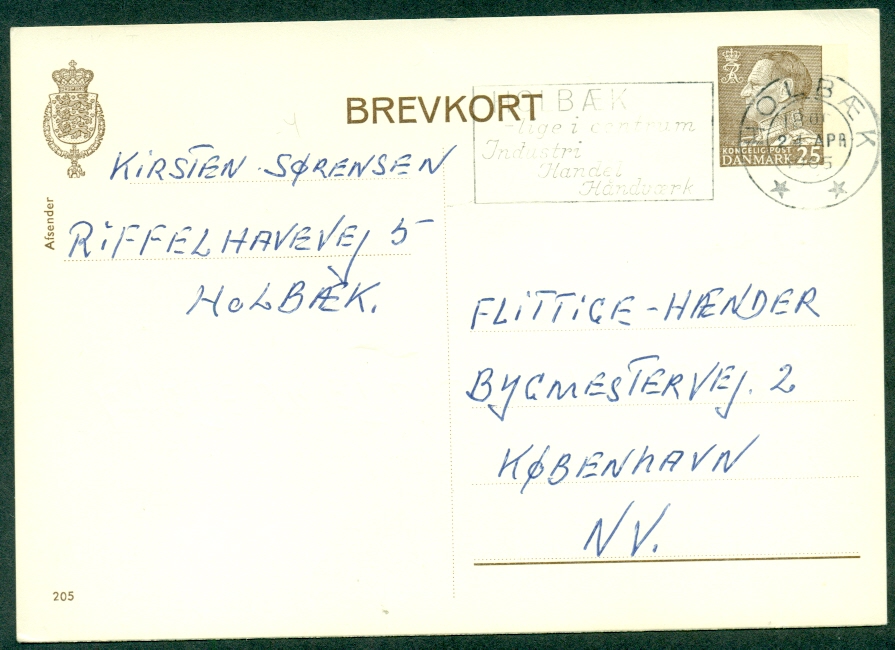 BREVKORT
HOLBÆK
-lige i centrum
Industri
Handel
Håndværk
HOLBÆK
APR
KONGELIG POST
DANMARK 25
Afsender
KIRSTEN SØRENSEN
RIFFELHAVEVEJ 5
HOLBÆK.
FLITTIGE-HÆNDER
BYGMESTERVEJ. 2
KØBENHAVN
NV.
205